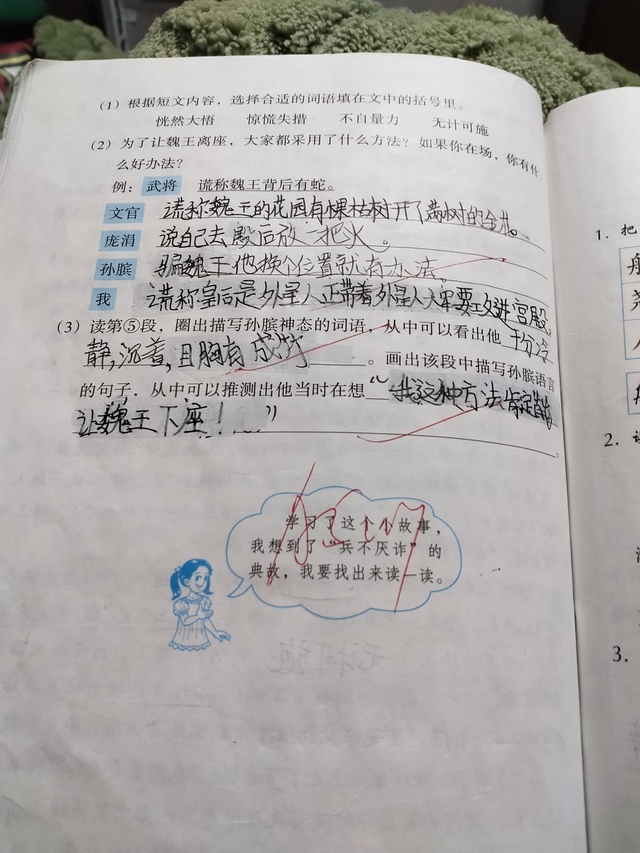 (1) 根据短文内容，选择合适的词语填在文中的括号里。
恍然大悟 惊慌失措 不自量力 无计可施
(2) 为了让魏王离座，大家都采用了什么方法？如果你在场，你有什
么好办法？
例：武将 谎称魏王背后有蛇。
文官 谎称魏王的花园有棵枯树开了满树的金花。
庞涓 说自己去殿后放一把火。
孙膑 骗魏王他换个位置就有办法
我 谎称皇后是外星人，正带着外星人大军要攻进宫殿。
(3) 读第⑤段，圈出描写孙膑神态的词语，从中可以看出他十分冷
静，沉着，且胸有成竹。画出该段中描写孙膑语言
的句子，从中可以推测出他当时在想“我这种方法肯定能
让魏王下座！……”
学习了这个小故事，
我想到了“兵不厌诈”的
典故，我要找出来读一读。
1. 把
2.
3.